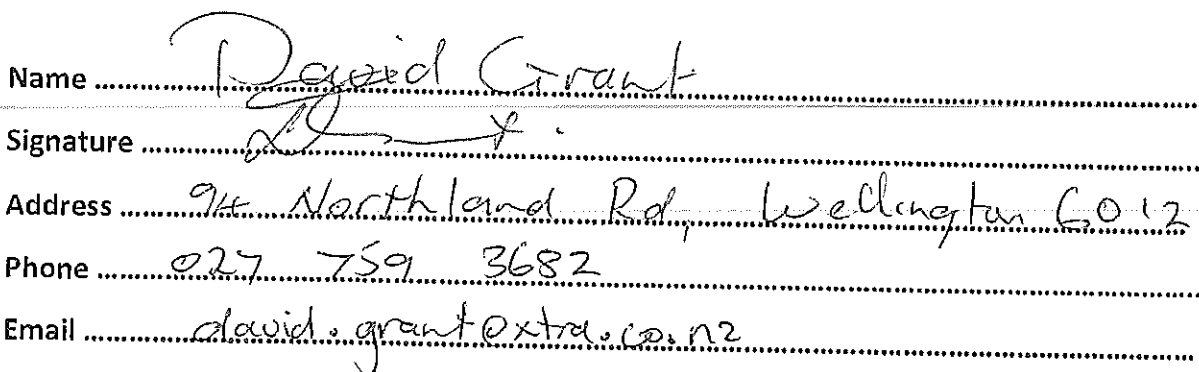 Name David Grant
Signature
Address 94 Northland Rd, Wellington 6012
Phone 027 759 3682
Email david.grant@xtra.co.nz